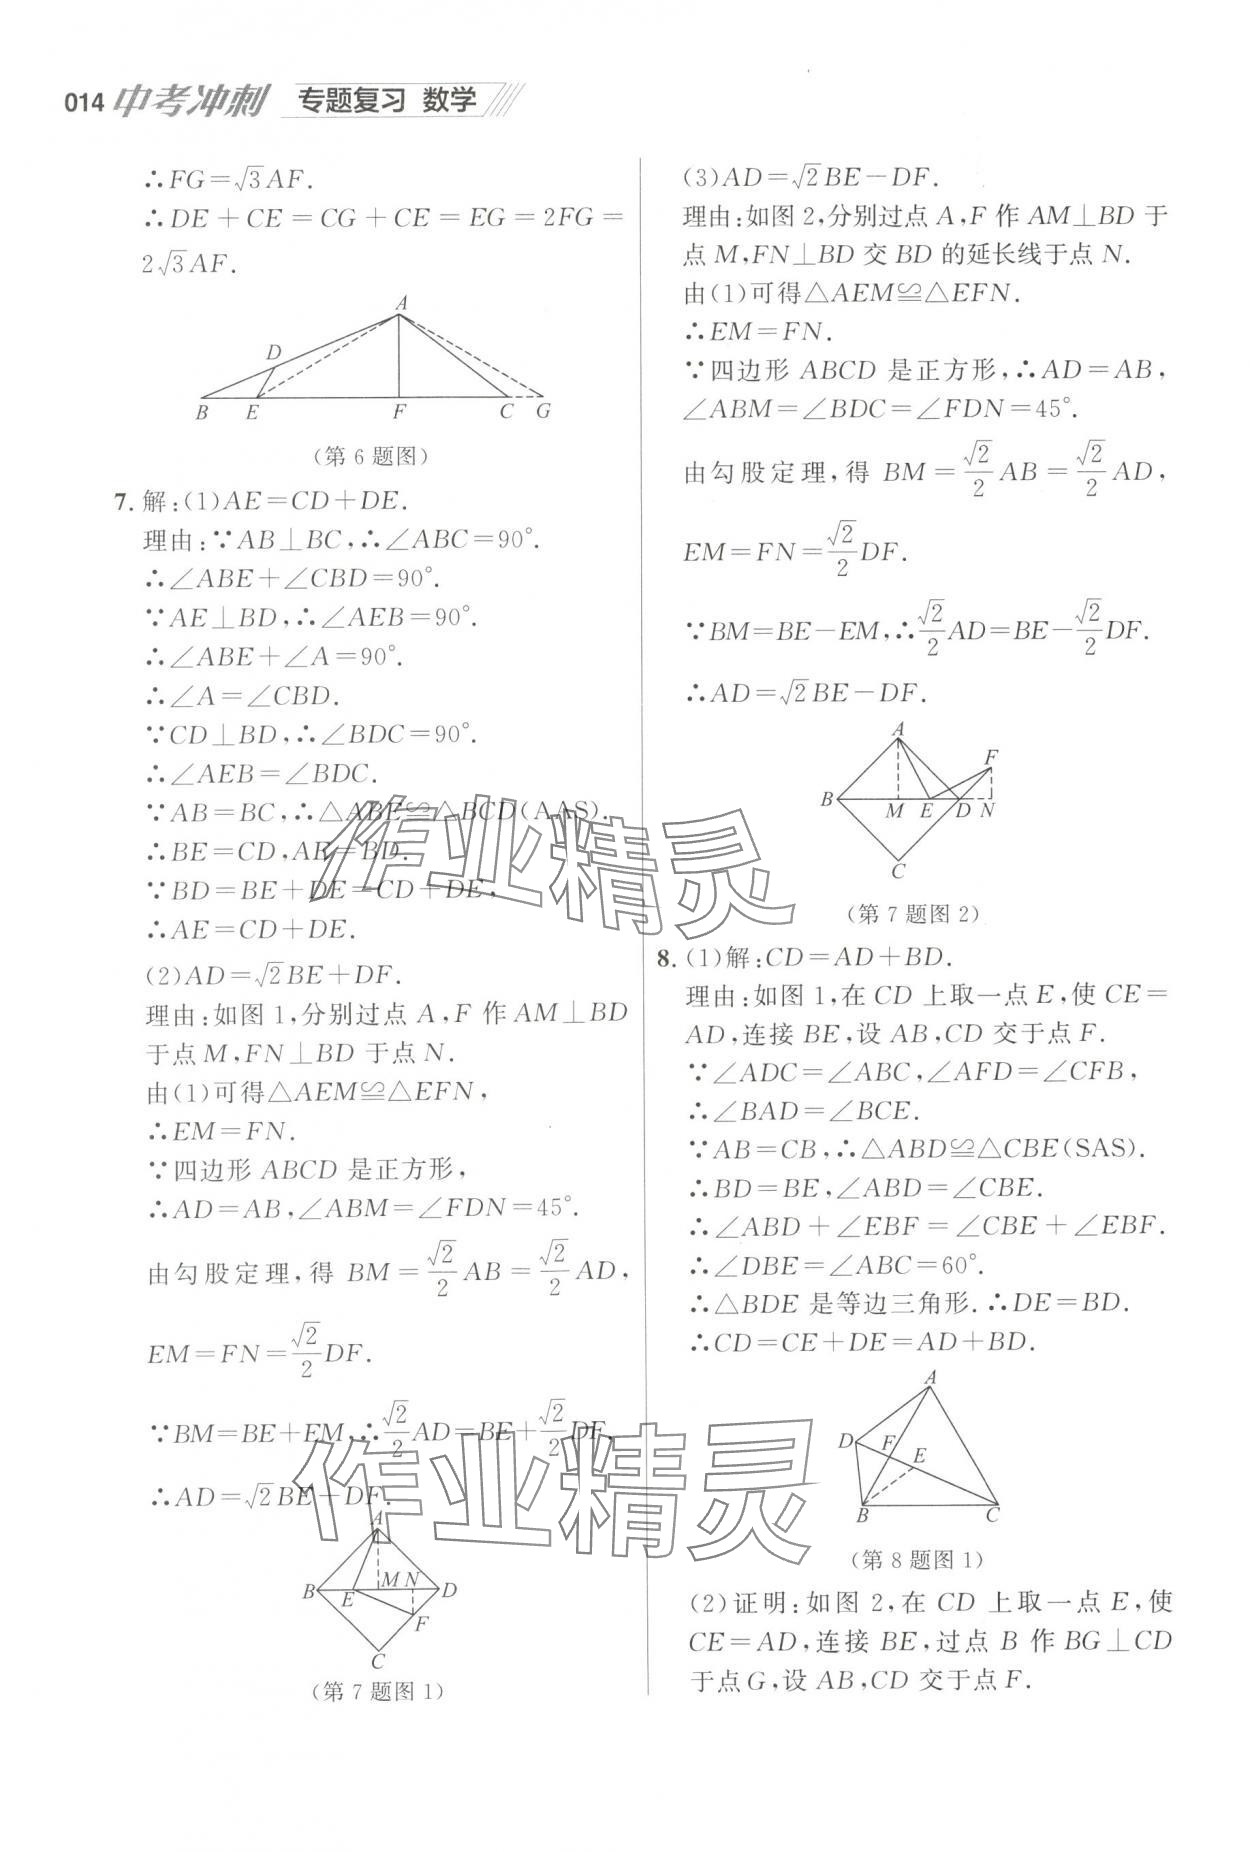 014 中考冲刺 专题复习 数学
∴FG=√3AF.
∴DE+CE=CG+CE=EG=2FG=
2√3AF.
A
D
B E F C G
(第6题图)
7. 解:(1)AE=CD+DE.
理由:∵AB⊥BC,∴∠ABC=90°.
∴∠ABE+∠CBD=90°.
∵AE⊥BD,∴∠AEB=90°.
∴∠ABE+∠A=90°.
∴∠A=∠CBD.
∵CD⊥BD,∴∠BDC=90°.
∴∠AEB=∠BDC.
∵AB=BC,∴△ABE≌△BCD(AAS).
∴BE=CD,AE=BD.
∵BD=BE+DE=CD+DE,
∴AE=CD+DE.
(2)AD=√2BE+DF.
理由:如图1,分别过点A,F作AM⊥BD
于点M,FN⊥BD于点N.
由(1)可得△AEM≌△EFN,
∴EM=FN.
∵四边形ABCD是正方形,
∴AD=AB,∠ABM=∠FDN=45°.
由勾股定理,得BM=√2/2AB=√2/2AD,
EM=FN=√2/2DF.
∵BM=BE+EM,∴√2/2AD=BE+√2/2DF.
∴AD=√2BE+DF.
A
B E M N D
F
C
(第7题图1)
(3)AD=√2BE-DF.
理由:如图2,分别过点A,F作AM⊥BD于
点M,FN⊥BD交BD的延长线于点N.
由(1)可得△AEM≌△EFN.
∴EM=FN.
∵四边形ABCD是正方形,∴AD=AB,
∠ABM=∠BDC=∠FDN=45°.
由勾股定理,得BM=√2/2AB=√2/2AD,
EM=FN=√2/2DF.
∵BM=BE-EM,∴√2/2AD=BE-√2/2DF.
∴AD=√2BE-DF.
A
F
B M E D N
C
(第7题图2)
8. (1)解:CD=AD+BD.
理由:如图1,在CD上取一点E,使CE=
AD,连接BE,设AB,CD交于点F.
∵∠ADC=∠ABC,∠AFD=∠CFB,
∴∠BAD=∠BCE.
∵AB=CB,∴△ABD≌△CBE(SAS).
∴BD=BE,∠ABD=∠CBE.
∴∠ABD+∠EBF=∠CBE+∠EBF.
∴∠DBE=∠ABC=60°.
∴△BDE是等边三角形.∴DE=BD.
∴CD=CE+DE=AD+BD.
A
D F E
B C
(第8题图1)
(2)证明:如图2,在CD上取一点E,使
CE=AD,连接BE,过点B作BG⊥CD
于点G,设AB,CD交于点F.
作业精灵
作业精灵